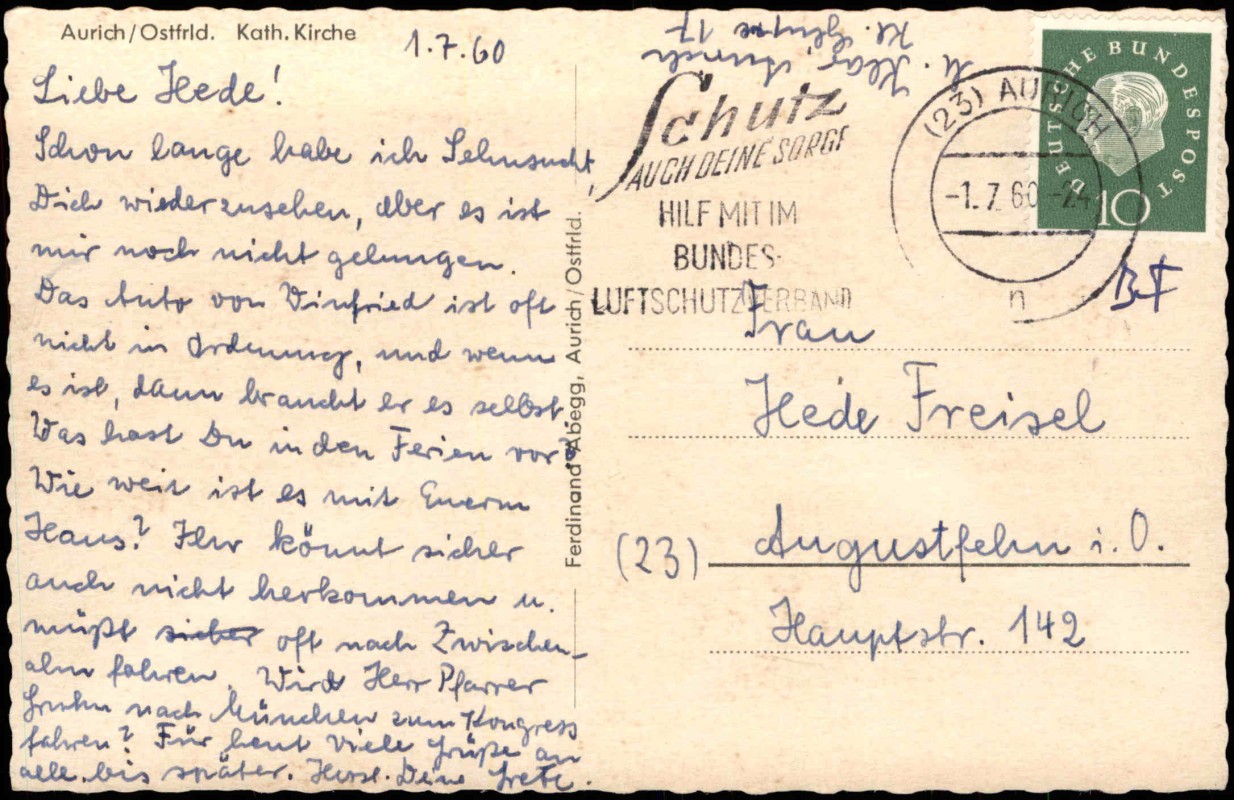 Aurich/Ostfrld. Kath. Kirche
1.7.60
Liebe Hede!
Schon lange habe ich Sehnsucht,
Dich wiederzusehen, aber es ist
mir noch nicht gelungen.
Das Auto von Winfried ist oft
nicht in Ordnung, und wenn
es ist, dann braucht er es selbst.
Was hast Du in den Ferien vor?
Wie weit ist es mit Euerm
Haus? Ihr könnt sicher
auch nicht herkommen u.
müßt sicher oft nach Zwischen-
ahn fahren. Wird Herr Pfarrer
nach München zum Kongress
fahren? Für heut viele Grüße an
alle. bis später. Herzl. Deine Grete.
Ferdinand Abegg, Aurich/Ostfrld.
Aurich
Kl. 17
Schutz
AUCH DEINE SORGE
HILF MIT IM
BUNDES-
LUFTSCHUTZVERBAND
(23) AURICH
-1.7.60-24
n
DEUTSCHE BUNDESPOST
10
Frau
Hede Freisel
(23) Augustfehn i. O.
Hauptstr. 142